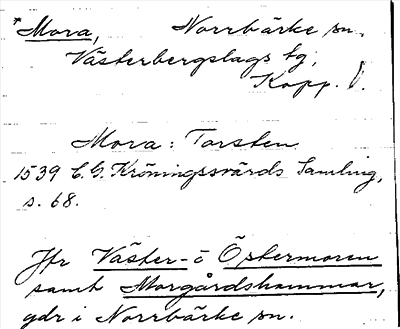 *Mora, Norrbärke sn.
Västerbergslags tg,
Kopp. l.
Mora: Torsten
1539 C.G. Kröningssvärds Samling,
s. 68.
Jfr Väster- o Östermoren
samt Morgårdshammar,
gdr i Norrbärke sn.